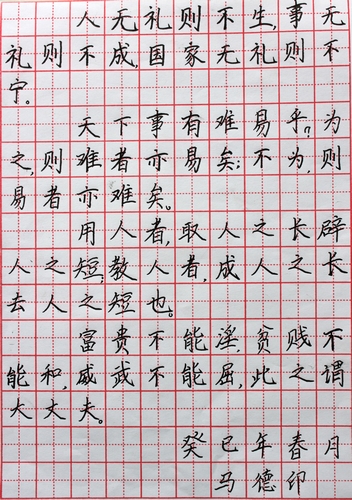 人无礼则不生,事无
礼则不成,国家无礼则不
宁。
天下事有难易乎?为
之,则难者亦易矣;不为,则
易者亦难矣。
用人者,取人之长辟
人之短;教人者,成人之长
去人之短也。
富贵不能淫,贫贱不
能和,威武不能屈,此之谓
大丈夫。
癸巳年春月
马德印